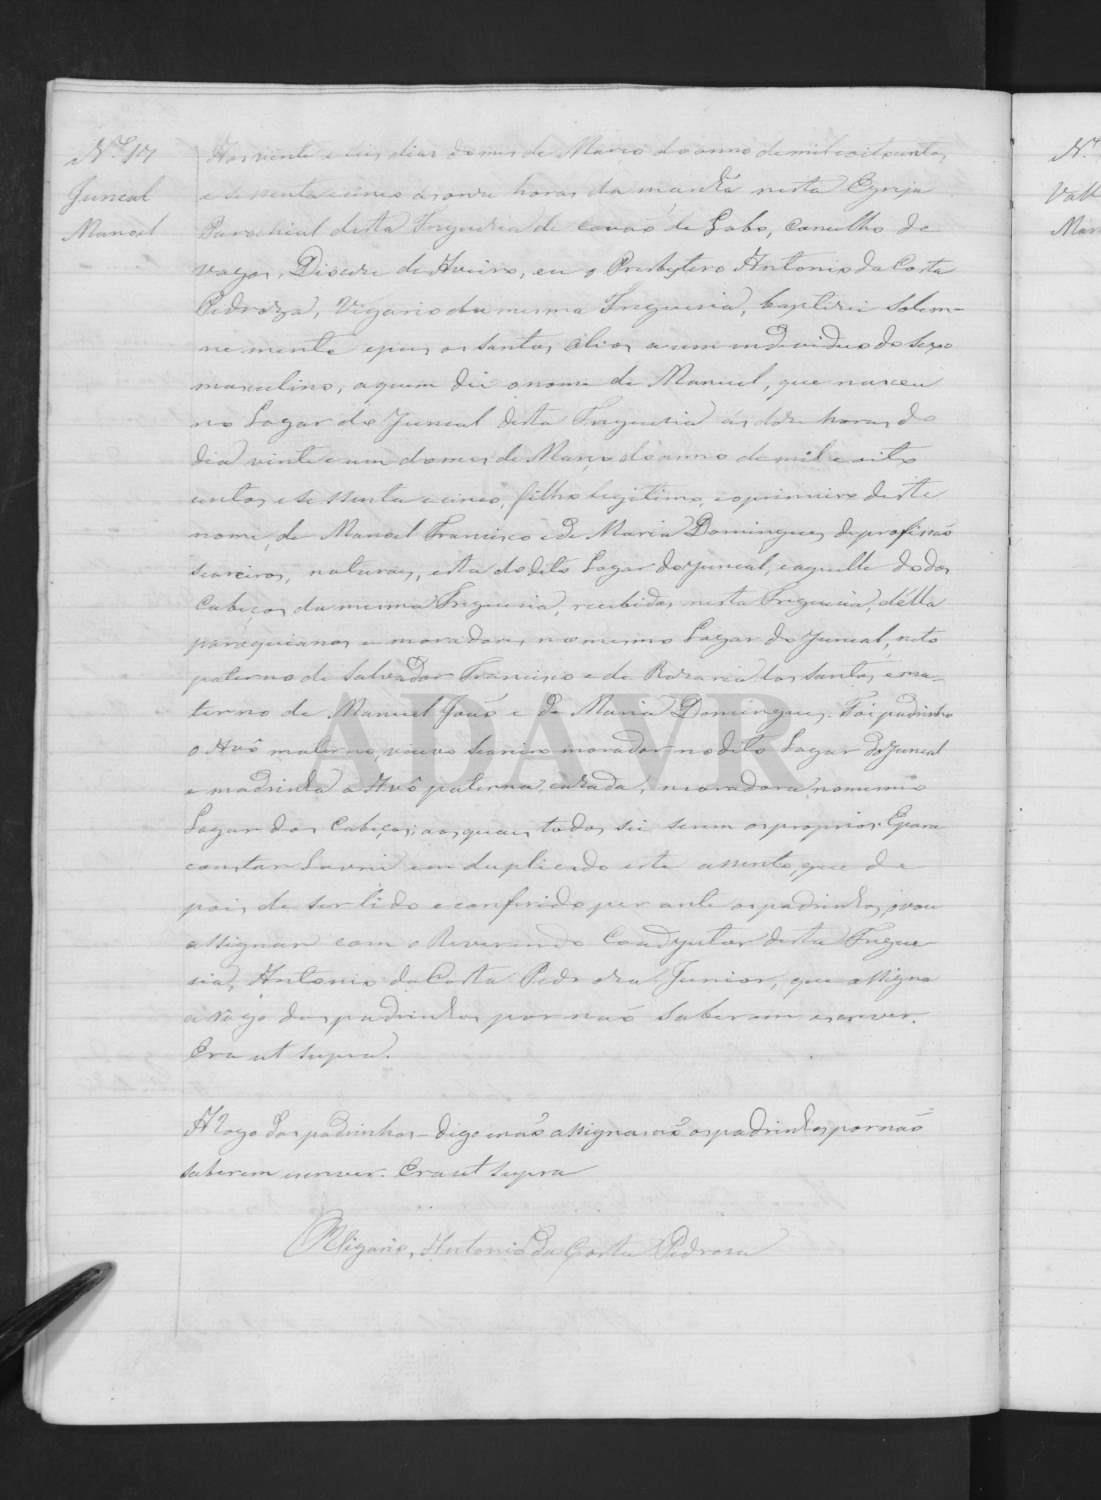 Nº 17
Juncal
Manoel
Aos vinte e seis dias do mes de Março do anno de mil oito centos
e sessenta e cinco ás onze horas da manhã nesta Egreja
Parochial desta Freguezia de Covão de Lobo, Concelho de
Vagos, Diocese de Aveiro, eu o Presbytero Antonio da Costa
Pedroza, Vigario da mesma Freguesia, baptizei solem-
ne mente e pus os santos olios a um individuo do sexo
masculino, a quem dei o nome de Manuel, que nasceu
no Logar do Juncal desta Freguesia ás doze horas do
dia vinte e um do mes de Março do anno de mil e oito
centos e se ssenta e cinco, filho legitimo e o primeiro deste
nome, de Manoel Francisco e de Maria Domingues de profissão
seareiros, naturaes, esta do dito Logar do Juncal, e aquelle do dos
Cabeços da mesma Freguesia, recebidos nesta Freguesia, della
paroquianos e moradores no mesmo Logar do Juncal, neto
paterno de Salvador Francisco e de Rozaria dos Santos, e ma-
terno de Manuel João e de Maria Domingues. Foi padrinho
o Avô materno, viuvo seareiro morador no dito Logar do Juncal
e madrinha a Avô paterna, cazada, moradora no mesmo
Logar dos Cabeços; aos quaes todos sei serem os proprios. E para
constar lavrei em duplicado este assento, que de
pois de ser lido e conferido per ante os padrinhos, vou
assignar com o Reverendo Coadjutor desta Fregue
sia, Antonio da Costa Pedroza Junior, que assigna
a rôgo dos padrinhos por não saberem escrever.
Era ut supra.
A rogo dos padrinhos - digo não assignarão os padrinhos por não
saberem escrever. Era ut supra
O Vigario, Antonio da Costa Pedroza
ADAVR
Nº
Vall
Man